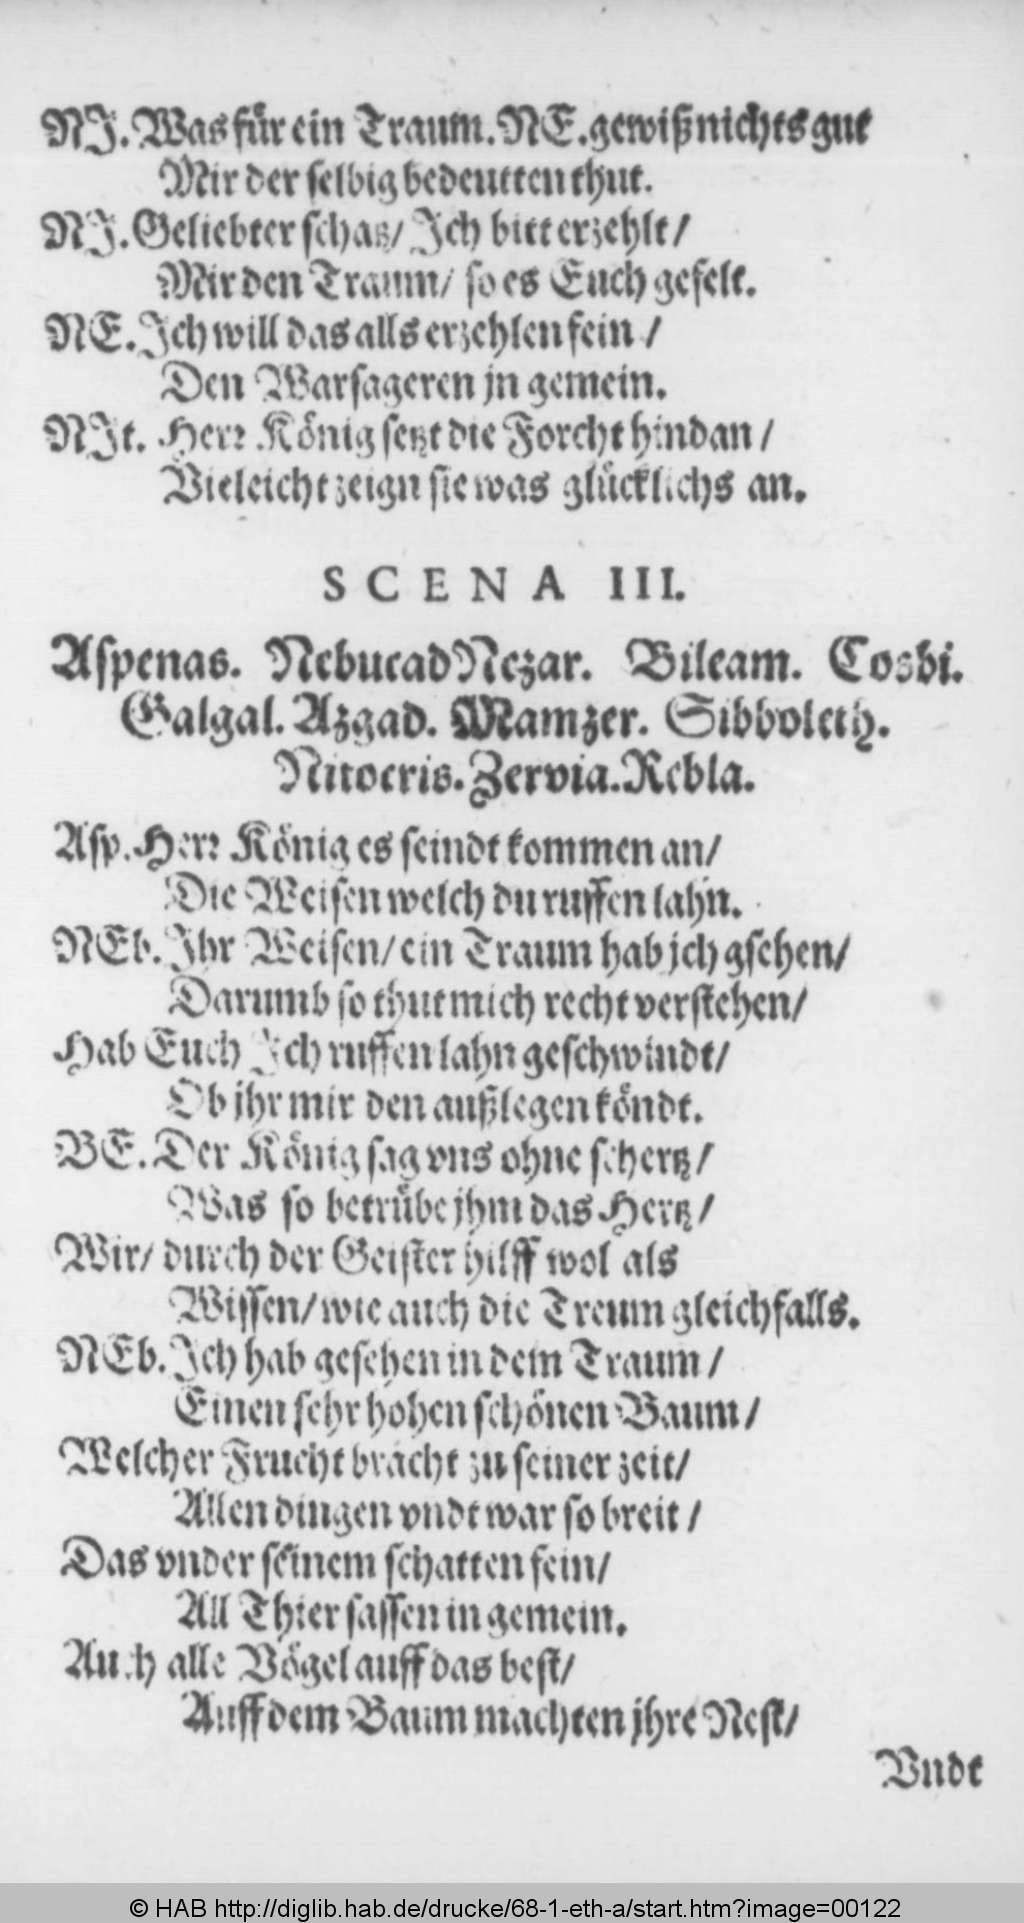 NJ. Was für ein Traum. NE. gewiß nichts gut
Mir der selbig bedeutten thut.
NJ. Geliebter schatz/ Ich bitt erzehlt/
Mir den Traum/ so es Euch gefelt.
NE. Ich will das alls erzehlen fein/
Den Warsageren jn gemein.
NJt. Herr König setzt die Forcht hindan/
Vieleicht zeign sie was glücklichs an.
SCENA III.
Aspenas. NebucadNezar. Bileam. Cosbi.
Galgal. Azgad. Mamzer. Sibboleth.
Nitocris. Zervia. Rebla.
Asp. Herr König es seindt kommen an/
Die Weisen welch du ruffen lahn.
NEb. Ihr Weisen/ ein Traum hab jch gsehen/
Darumb so thut mich recht verstehen/
Hab Euch Ich ruffen lahn geschwindt/
Ob jhr mir den außlegen köndt.
BE. Der König sag vns ohne schertz/
Was so betrübe jhm das Hertz/
Wir/ durch der Geister hilff wol als
Wissen/ wie auch die Treum gleichfalls.
NEb. Ich hab gesehen in dem Traum/
Einen sehr hohen schönen Baum/
Welcher Frucht bracht zu seiner zeit/
Allen dingen vndt war so breit/
Das vnder seinem schatten fein/
All Thier sassen in gemein.
Auch alle Vögel auff das best/
Auff dem Baum machten jhre Nest/
Vndt
© HAB http://diglib.hab.de/drucke/68-1-eth-a/start.htm?image=00122